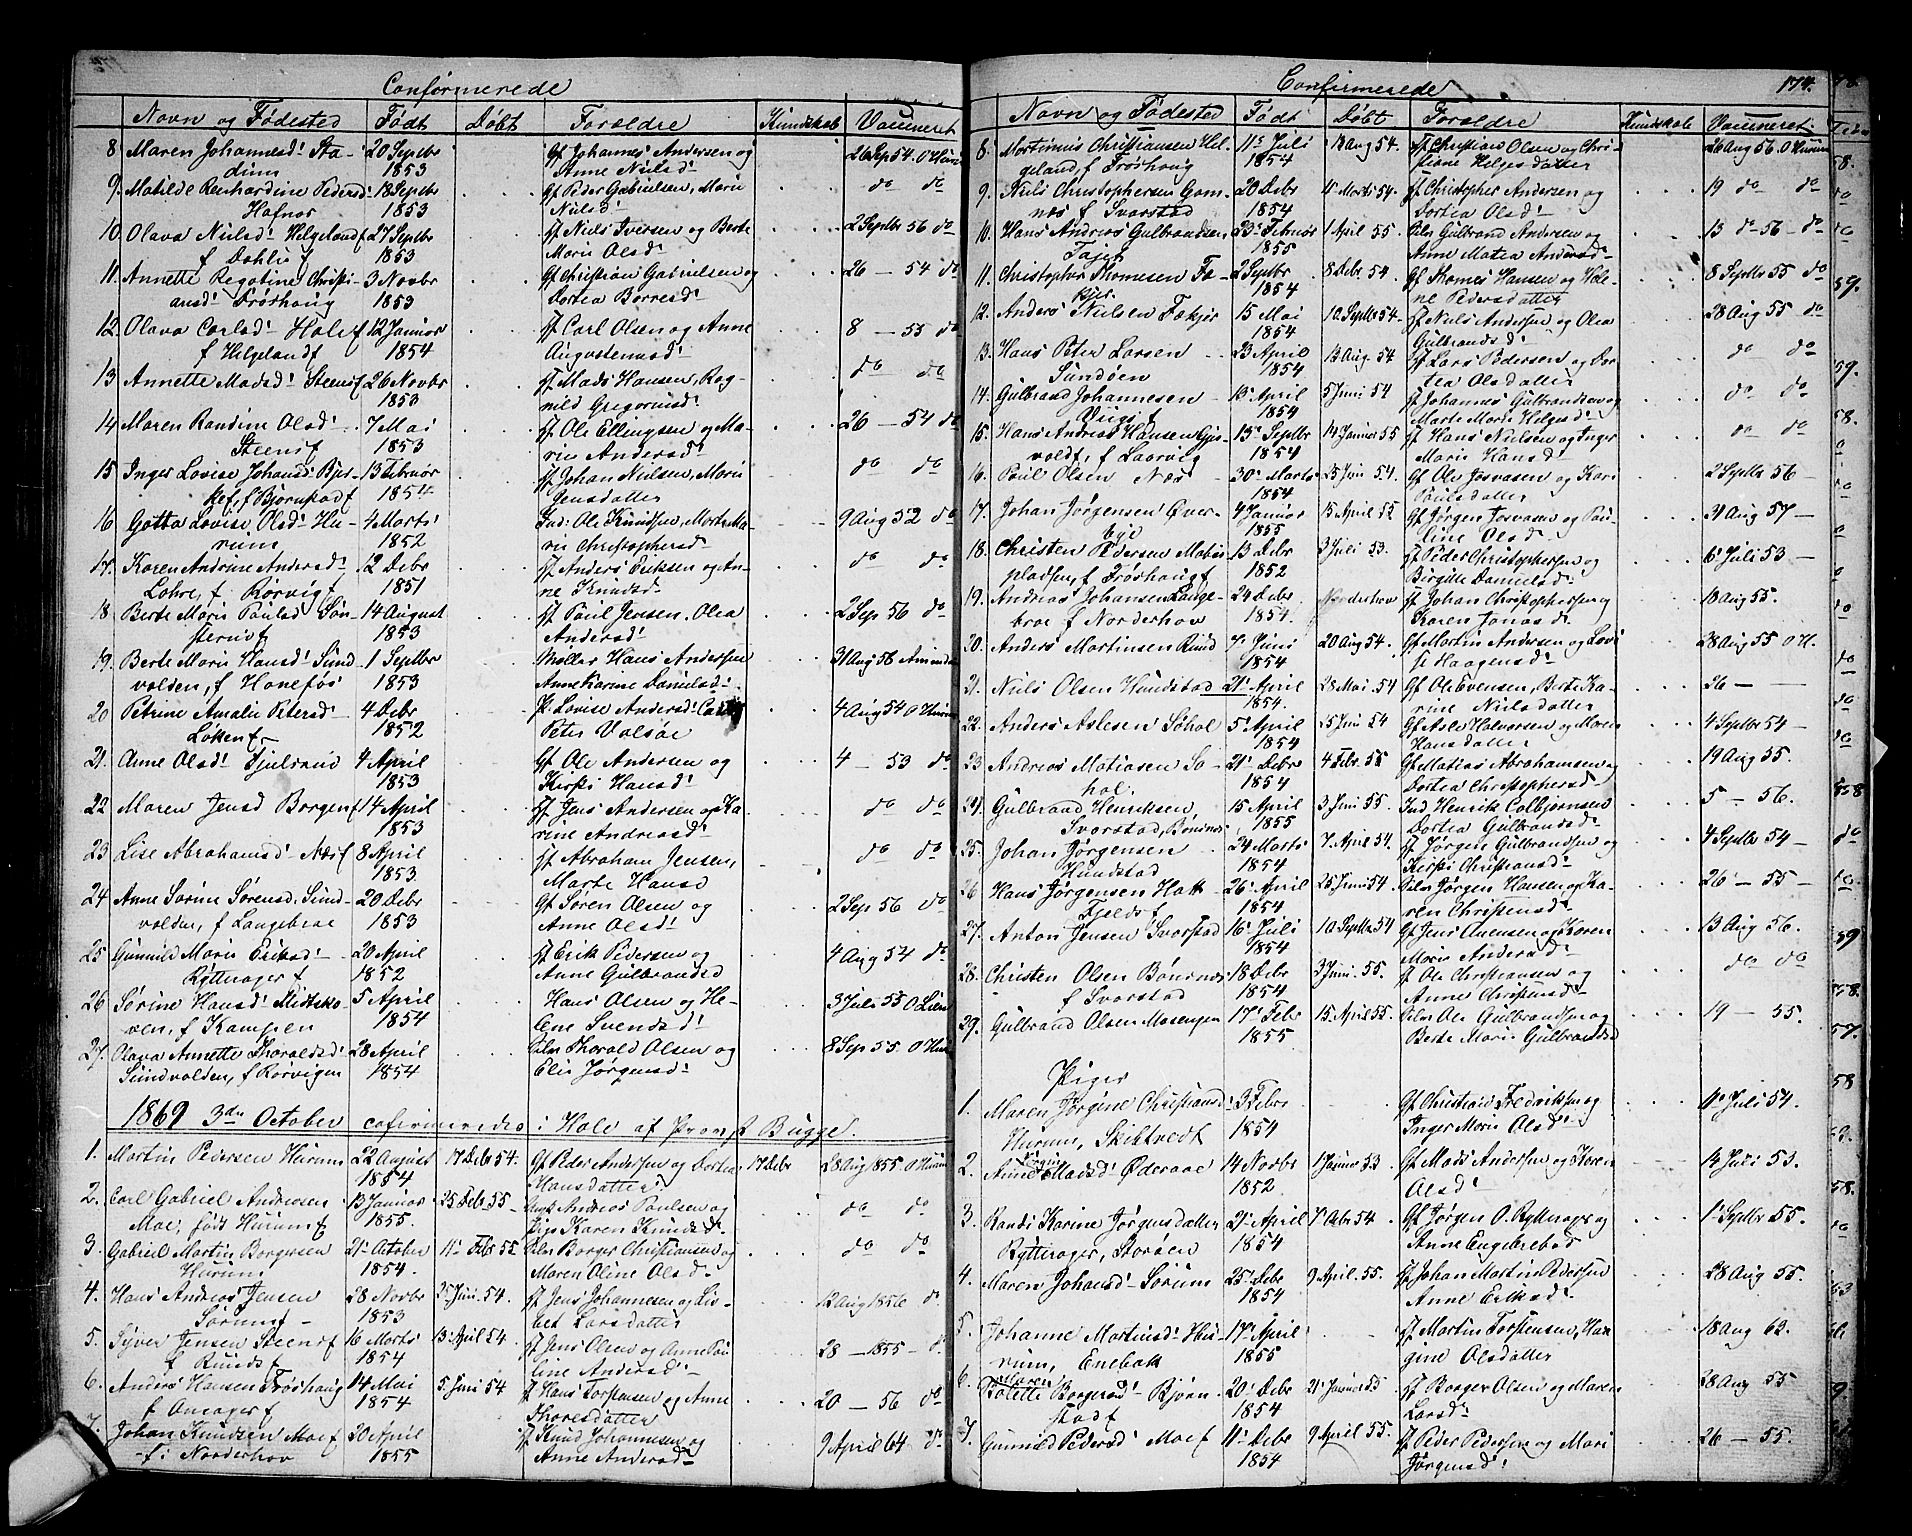 Confirmerede
Navn og Fødested Født Døbt Forældre Kundskab Vaccineret
8. Maren Johannesd. Sta- 20 Septbr Gf Johannes Andersen og 26 Sep 54. O Hurum
dum 1853 Anne Nielsd.
9. Matilde Renhardine Pedersd. 18 Septbr Gf Peder Gabrielsen, Marie do do
Hafnor 1853 Nielsd.
10. Olava Nielsd. Helgeland f 27 Septbr Gf Niels Iversen og Berte 2 Septbr 56 do
f Dahlie f 1853 Marie Olsd.
11. Annette Regatine Christi- 3 Novbr Gf Christian Gabrielsen og 26 — 54 do
ansd. Frøshoug 1853 Dortea Borresd.
12. Olava Carlsd. Hole f 12 Januar Gf Carl Olsen og Anne 8 — 55 do
f Helgeland f 1854 Augustenusd.
13 Annette Madsd. Steens f 26 Novbr Gf Mads Hansen, Rag- do do
1853 nild Gregoriusd.
14 Maren Randine Olsd. 7 Mai Gf Ole Ellingsen og Ma- 26 — 54 do
Steens f 1853 rie Andersd.
15 Inger Lovise Johansd. Bjer- 13 Februar Gf Johan Nielsen, Marie do do
ke f, f Bjørnstad f 1854 Jensdatter
16 Gotta Lovise Olsd. Hu- 4 Marts Ole Knudsen, Marte Ma- 9 Aug 52 do
rum 1852 rie Christophersd.
17. Karen Andrine Andersd. 2 Debr Gf Anders Eriksen og An- do do
Lohre, f. Rørvig f 1851 ne Knudsd.
18 Berte Marie Paulsd. Søn- 14 August Gf Paul Jensen, Olea 2 Sep 56 do
sterud f 1853 Andersd.
19. Berte Marie Hansd. Sund- 1 Septbr Møller Hans Andersen 31 Aug 56
volden, f. Hønefos 1853 Anne Karine Danielsd.
20 Petrine Amalie Petersd. 4 Debr Lovise Andersd. 4 Aug 54 O Hurum
Løken f 1852 Peter Valsøe
21. Anne Olsd. Fjulsrud 4 April Gf Ole Andersen og 4 — 53 do
1853 Kirsti Hansd.
22 Maren Jensd Borgen f 4 April Gf Jens Andersen og Ka- do do
1853 rine Andreasd.
23 Lise Abrahamsd. Næs f 8 April Gf Abraham Jensen, do do
1853. Marte Hansd
24 Anne Sørine Sørensd. Sund- 20 Debr Gf Søren Olsen og 2 Sep 56 do
volden, f Langebrae 1853 Anne Olsd.
25 Gunnild Marie Eriksd. 20 April Gf Erik Pedersen og 4 Aug 54 do
Rytterager f 1852 Anne Gulbrandsd
26 Sørine Hansd. Slidtsko- 5 April Hans Olsen og He- 3 Juli 55 O Lien
ven, f Kampen 1854 lene Svendsd.
27. Olava Annette Thoraldsd. 28 April Thorald Olsen og 8 Sep 55. O Hur
Sundvolden, f Rørvigen 1854 Elis Jørgensd.
1869 3die October cofirmeredes i Hole af Provst Bugge.
1. Martin Pedersen Hurum 22 August 17 Debr 54. Gf Peder Andersen og Dortea 17 Debr 28 Aug 1855 O Hurum
1854 Hansdatter
2. Carl Gabriel Andreasen 13 Januar 25 Febr 55 Andreas Paulsen og do do
Moe, født Hurum f 1855. Pige Karen Knudsd.
3. Gabriel Martin Borgersen 21 October 11 Febr 55 Borger Christiansen og do do
Hurum 1854. Maren Oline Olsd.
4. Hans Andreas Jensen 28 Novbr Juni 54. Gf Jens Johannesen og Lis- 12 Aug 1856 do
Sørum f 1853 bet Larsdatter
5. Syver Jensen Steens f 16 Marts 13 April 54 Gf Jens Olsen og Anne Pau- 28 — 1855 — do
f Ruuds f 1854 line Andersd.
6. Anders Hansen Frøshoug 14 Mai 5 Juni 54 Gf Hans Torstensen og Anne 20 — 56 do
f Onsager f 1854 Thoresdatter
7. Johan Knudsen Moe f 20 April Gf Knud Johannesen og 9 April 64 do
f. Norderhov 1855 Anne Andersd.
Confirmerede 174.
Navn og Fødested Født Døbt Forældre Kundskab Vaccineret
8. Mortinus Christiansen Hel- 11 Juli 13 Aug 54. Gf Christian Olsen og Chri- 26 Aug 56. O Hurum
geland, f Frøshoug 1854 stiane Helgesdatter
9. Niels Christophersen Gom- 20 Debr 4 Marts 54. Gf Christopher Andersen og 19 do do
nes f Svarstad 1854 Dortea Olsd.
10. Hans Andreas Gulbrandsen 23 Februar 1 April 55. Gulbrand Andersen og 13 do 56 — do
1855 Anne Matea Andersd.
11. Christopher Thomesen Fæ- 2 Septbr 8 Debr 54. Gf Thomes Hansen og Hele- 8 Septbr 55 do
kjer 1854 ne Pedersdatter
12. Anders Nielsen Fækjer 15 Mai 10 Septbr 54. Gf Niels Andersen og Olea 28 Aug 55 do
1854 Gulbrandsd.
13. Hans Peter Larsen 23 April 13 Aug. 54 Gf Lars Pedersen og Dor- do do
Sundøen 1854 tea Olsdatter
14. Gulbrand Johannesen 15 April 5 Juni 54 Gf Johannes Gulbrandsen og do do
Viig f 1854 Marte Marie Helgesd.
15. Hans Andreas Hansen Gjes- 13 Septbr 14 Januar 55 Gf Hans Nielsen og Inger do do
vold f, f Laarvig 1854 Marie Hansd.
16. Paul Olsen Næs 30 Marts 25 Juni 54. Gf Ole Josvasen og Kari 2 Septbr 56
1854 Paulsdatter
17. Johan Jørgensen Øver- 4 Januar 15 April 55 Gf Jørgen Josvasen og Pau- 31 Aug 57 —
bye 1855 line Olsd.
18. Christen Pedersen Mobir- 13 Debr 3 Juli 53. Gf Peder Christophersen og 6 Juli 53 —
pladsen, f Frøshoug f 1852 Birgitte Danielsd.
19. Andreas Johansen Lange- 24 Debr Norderhov Gf Johan Christophersen og 18 Aug 55.
brae f Norderhov 1854. Karen Jonasd.
20. Anders Martinsen Ruud 7 Juni 20 Aug 54. Gf Martin Andersen og Lovi- 28 Aug 55 O H.
1854 se Haagensd.
21. Niels Olsen Hundstad 21 April 28 Mai 54 Gf Ole Evensen, Berte Ka- 26 —
1854. rine Nielsdatter
22. Anders Aslesen Søhol 5 April 5 Juni 54 Gf Asle Halvorsen og Maren 4 Septbr 54 —
1854 Hansdatter
23. Andreas Matiasen Sø- 21 Debr 4 Febr. 55 Gf Matias Abrahamsen og 19 Aug 55.
hol. 1854 Dortea Christophersd.
24. Gulbrand Henriksen 15 April 3 Juni 55. Ind Henrik Colbjørnsen 5 — 56.
Svarstad, Bønsnes 1855 Dortea Gulbrandsd.
25. Johan Jørgensen 24 Marts 7 April 54. Gf Jørgen Gulbrandsen og 4 Septbr 54 —
Hundstad 1854 Kirsti Christiansd.
26 Hans Jørgensen Hatt- 26 April 25 Juni 54 Jørgen Hansen og Ka- 26 — 55 —
fjelds f 1854 ren Christensd.
27. Anton Jensen Svarstad 16 Juli 10 Septbr 54 Gf Jens Auensen og Karen 13 Aug 56.
1854 Marie Andersd.
28. Christen Olsen Bønsnes 18 Debr 3 Juni. 55. Gf Ole Christiansen og do do
f Svarstad 1854 Anne Christensd.
29. Gulbrand Olsen Mosengen 17 Febr 15 April 55. Ole Gulbrandsen og 19 — 55.
1855 Berte Marie Gulbrandsd
Piger
1. Maren Jørgine Christiansd. 3 Febr Gf Christian Fredriksen og 11 Juli 54.
Hurum, Skibtvedt 1854 Inger Marie Olsd.
2. Anne Madsd. Øderaae 14 Novbr 1 Januar 53 Gf Mads Andersen og Karen 14 Juli 53.
1852 Olsd.
3. Randi Karine Jørgensdatter 21 April 7 54 Gf Jørgen O. Rytterager og 1 Septbr 55.
Rytterager, Storøen 1854 Anne Engebretsd
4. Maren Johansd. Sørum 25 Debr 9 April 55. Gf Johan Martin Pedersen 28 Aug 55.
1854 Anne Eriksd.
5. Johanne Martinsd. Hu- 17 April Gf Martin Torstensen, Han- 18 Aug 62.
rum, Enebak 1855 gine Olsdatter
6. Bolette Maren Borgersd. Bjørn- 20 Debr 21 Januar 55 Gf Borger Olsen og Maren 28 Aug 55
stad f 1854 Larsd.
7. Gunnild Pedersd. Moe f 11 Debr 9 April 55. Gf Peder Pedersen og Mari 26 — 55.
1854 Jørgensd.